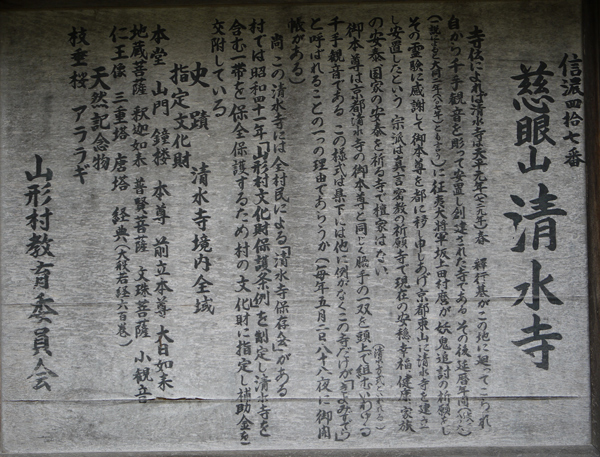 信濃四拾七番
慈眼山 清水寺
寺伝によれば清水寺は天平元年（七二九年）春 行基がこの地に廻ってこられ
自から千手観音を彫って安置し創建された寺である その後延暦年間
に征夷大将軍坂上田村麿が妖鬼追討の祈願をし
その霊験に感謝して御本尊を都に移し申しあげ京都東山に清水寺を建立
し安置したという 宗派は真言密教の祈願寺で現在の安穏幸福健康家族
の安泰国家の安泰を祈る寺で檀家はない
御本尊は京都清水寺の御本尊と同じく脇手の一双を頭上で組むいわゆる
千手観音である この様式は県下には他に例がなくこの寺だけが
と呼ばれることの一つの理由であろうか（毎年五月二日八十八夜に御開
帳がある）
尚この清水寺には全村民による「清水寺保存会」がある
村では昭和四十一年「山形村文化財保護条例」を制定し清水寺を
含む一帯を保全保護するため村の文化財に指定し補助金を
交附している
史蹟 清水寺境内全域
指定文化財
本堂 山門 鐘楼 本尊 前立本尊 大日如来
地蔵菩薩 釈迦如来 普賢菩薩 文珠菩薩 小観音
仁王像 三重塔 唐塔 経典（大般若経六百巻）
天然記念物
枝垂桜 アララギ
山形村教育委員会